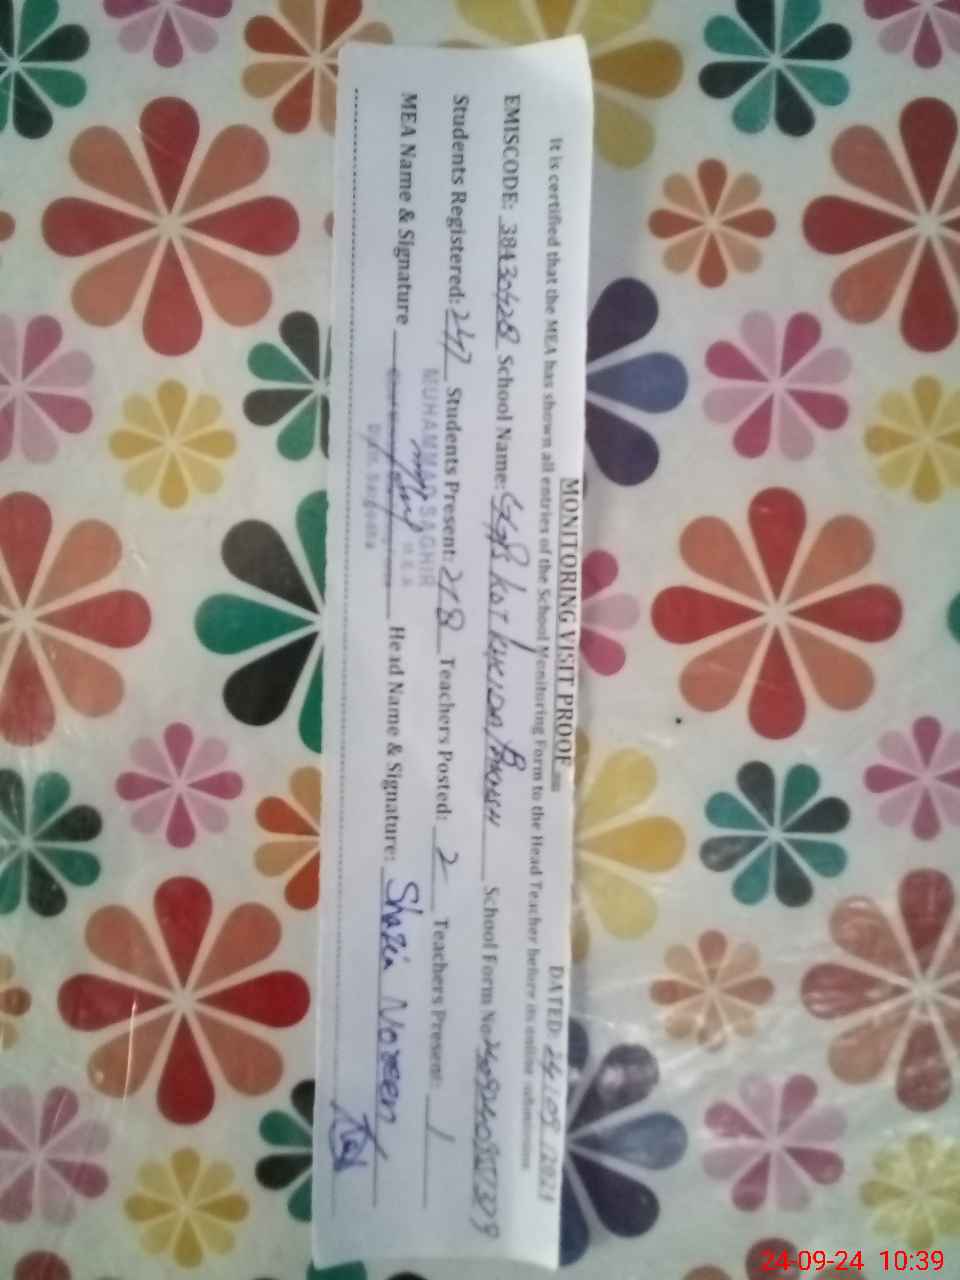 MONITORING VISIT PROOF
DATED: 24/09/2024
It is certified that the MEA has shown all entries of the School Monitoring Form to the Head Teacher before its online submission
EMISCODE: 38430428 School Name: KOT School Form No
Students Registered: 247 Students Present: 218 Teachers Posted: 2 Teachers Present: 1
MUHAMMAD SAGHIR
M.E.A
MEA Name & Signature Head Name & Signature: Shazia Noreen
Distt. Sargodha
24-09-24 10:39